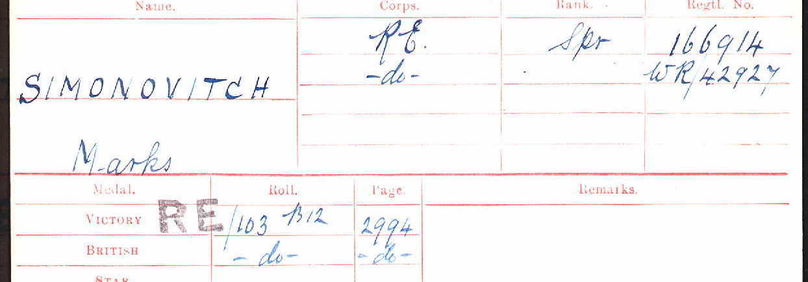 Name. Corps. Rank. Regtl. No.
SIMONOVITCH R.E. Spr 166914
-do- WR/42927
Marks
Medal. Roll. Page. Remarks.
VICTORY RE /103 B12 2994
BRITISH -do- -do-
STAR